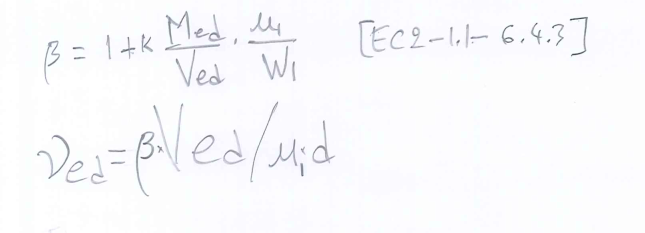 β = 1 + k Med/Ved · μ1/W1 [EC2-1.1- 6.4.3]
νed = β × Ved / μid